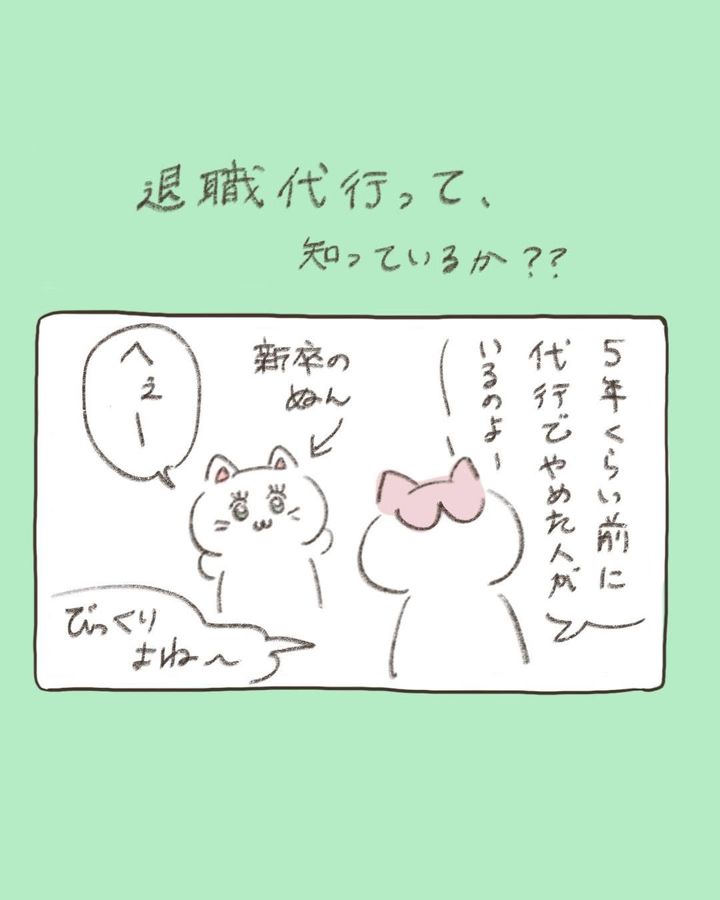 退職代行って、
知っているか??
5年くらい前に
代行でやめた人が
いるのよー
新卒の
ぬん
へぇー
びっくり
よね〜